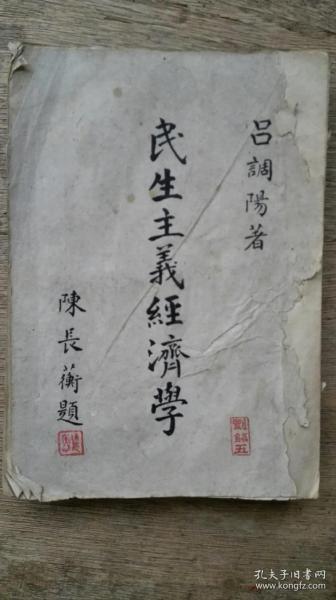 呂調陽著
民生主義經濟學
陳長蘅題
孔夫子旧书网
www.kongfz.com